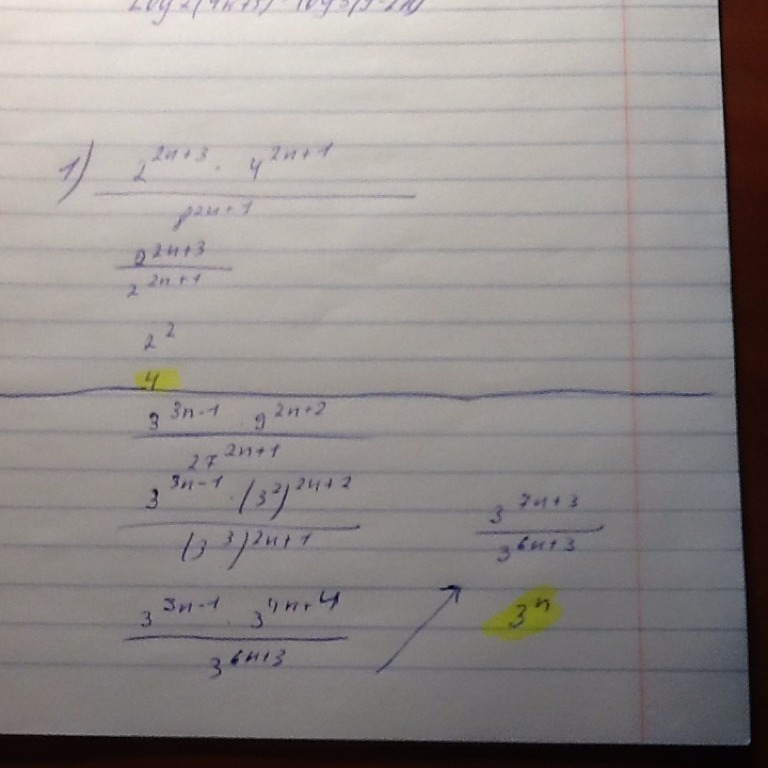 1) 2^{2n+3} · 4^{2n+1}
8^{2n+1}
2^{2n+3}
2^{2n+1}
2^2
4
3^{3n-1} · 9^{2n+2}
27^{2n+1}
3^{3n-1} · (3^2)^{2n+2}
(3^3)^{2n+1}
3^{3n-1} · 3^{4n+4}
3^{6n+3}
3^{7n+3}
3^{6n+3}
3^n